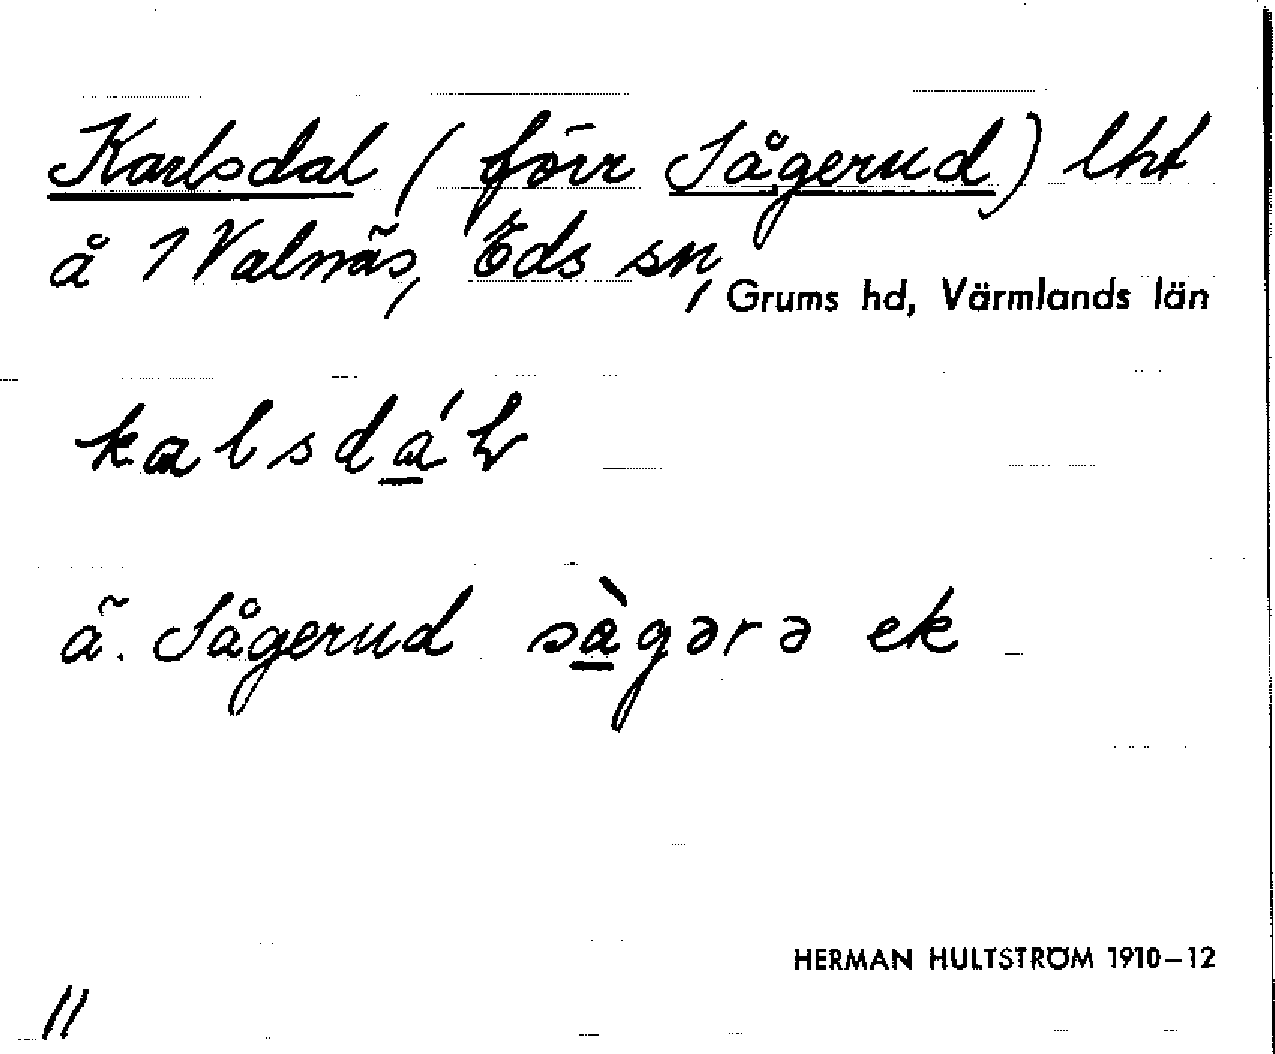 Karlsdal (förr Sågerud) lht
å 1 Valnäs, Eds sn, Grums hd, Värmlands län
kalsdál
ä. Sågerud sàgərə ek
HERMAN HULTSTRÖM 1910–12
11